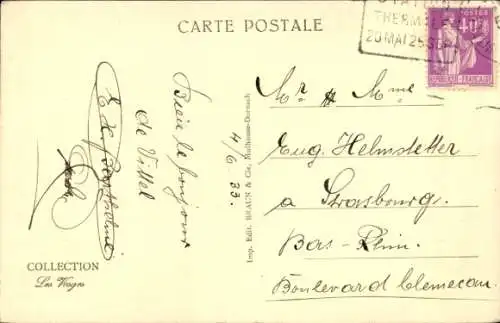 CARTE POSTALE
THERMALE
20 MAI 25 SEP
POSTES
40c
Bien le bonjour
de Vittel
4/6 33.
Imp. Edit. BRAUN & Cie, Mulhouse-Dornach
COLLECTION
Les Vosges
Mr & Mme
Eug. Helmstetter
a Strasbourg.
Bas-Rhin.
Boulevard Clemecau.